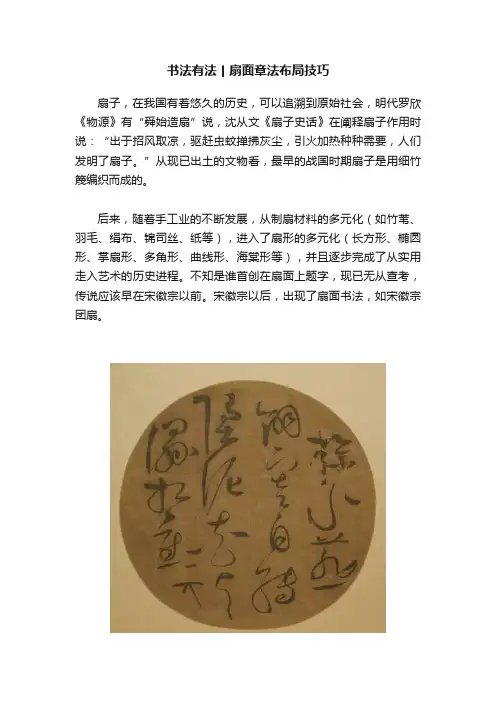 书法有法 | 扇面章法布局技巧
扇子，在我国有着悠久的历史，可以追溯到原始社会，明代罗欣
《物源》有“舜始造扇”说，沈从文《扇子史话》在阐释扇子作用时
说：“出于招风取凉，驱赶虫蚊掸拂灰尘，引火加热种种需要，人们
发明了扇子。”从现已出土的文物看，最早的战国时期扇子是用细竹
篾编织而成的。
后来，随着手工业的不断发展，从制扇材料的多元化（如竹苇、
羽毛、绢布、锦司丝、纸等），进入了扇形的多元化（长方形、椭圆
形、掌扇形、多角形、曲线形、海棠形等），并且逐步完成了从实用
走入艺术的历史进程。不知是谁首创在扇面上题字，现已无从查考，
传说应该早在宋徽宗以前。宋徽宗以后，出现了扇面书法，如宋徽宗
团扇。
掠水燕
翎寒自轉
墮泥花片
濕相重